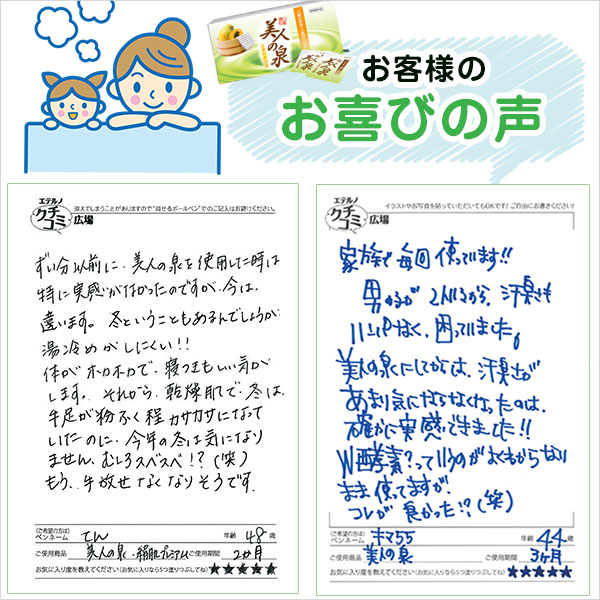 美人の泉
お客様の
お喜びの声
エテルノ
クチコミ広場
消えてしまうことがありますので"消せるボールペン"でのご記入はお避けください。
ずい分以前に、美人の泉を使用した時は
特に実感がなかったのですが、今は、
違います。冬ということもあるんでしょうが
湯冷めがしにくい!!
体がホカホカで、寝つきもいい気が
します。それから、乾燥肌で、冬は、
手足が粉ふく程カサカサになって
いたのに、今年の冬は気になり
ません。むしろスベスベ!?(笑)
もう、手放せなくなりそうです。
(ご希望の方は)
ペンネーム てん 年齢 48歳
ご使用商品 美人の泉・プレミアム ご使用期間 2か月
お気に入り度を教えてください(お気に入りなら5つ塗りつぶしてね) ★★★★★
エテルノ
クチコミ広場
イラストやお写真を貼っていただいてもOKです!ご自由にお書きください!
家族で毎回使っています!!
男の子が2人いるから、汗臭さも
ハンパなく、困っていました。
美人の泉にしてからは、汗臭さが
あまり気にならなくなったのは、
確かに実感できました!!
W酵素?っていうのがよくわからない
まま使ってますが、
コレが良かった!?(笑)
(ご希望の方は)
ペンネーム キマ55 年齢 44歳
ご使用商品 美人の泉 ご使用期間 3ヶ月
お気に入り度を教えてください(お気に入りなら5つ塗りつぶしてね) ★★★★★